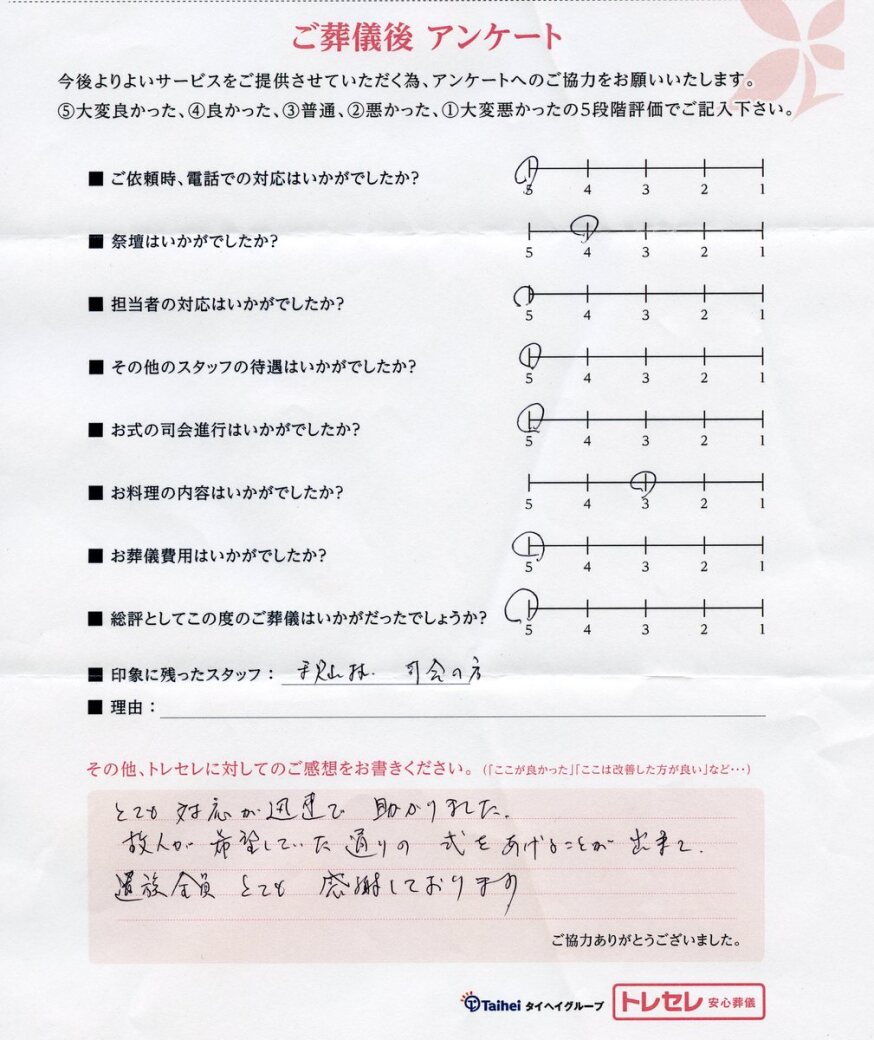 ご葬儀後 アンケート
今後よりよいサービスをご提供させていただく為、アンケートへのご協力をお願いいたします。
⑤大変良かった、④良かった、③普通、②悪かった、①大変悪かったの5段階評価でご記入下さい。
■ ご依頼時、電話での対応はいかがでしたか?
5 4 3 2 1
■ 祭壇はいかがでしたか?
5 4 3 2 1
■ 担当者の対応はいかがでしたか?
5 4 3 2 1
■ その他のスタッフの待遇はいかがでしたか?
5 4 3 2 1
■ お式の司会進行はいかがでしたか?
5 4 3 2 1
■ お料理の内容はいかがでしたか?
5 4 3 2 1
■ お葬儀費用はいかがでしたか?
5 4 3 2 1
■ 総評としてこの度のご葬儀はいかがだったでしょうか?
5 4 3 2 1
■ 印象に残ったスタッフ: 司会の方
■ 理由:
その他、トレセレに対してのご感想をお書きください。(「ここが良かった」「ここは改善した方が良い」など…)
とても対応が迅速で 助かりました。
故人が希望していた通りの 式をあげることが出来て、
遺族全員 とても 感謝しております
ご協力ありがとうございました。
Taihei タイヘイグループ トレセレ 安心葬儀